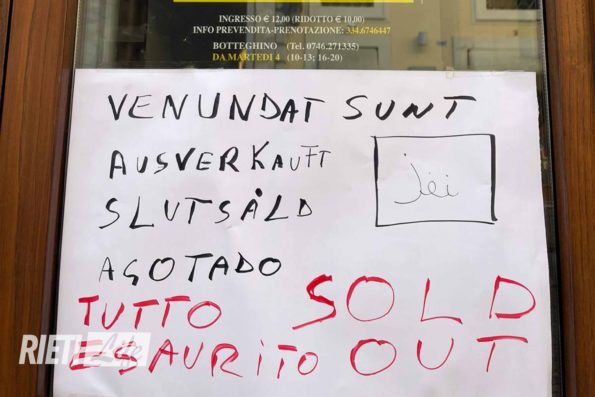 INGRESSO € 12,00 (RIDOTTO € 10,00)
INFO PREVENDITA-PRENOTAZIONE: 334.6746447
BOTTEGHINO (Tel. 0746.271335)
DA MARTEDI 4 (10-13; 16-20)
VENUNDAT SUNT
AUSVERKAUFT
SLUTSÅLD
AGOTADO
TUTTO SOLD
ESAURITO OUT
RIETI Life